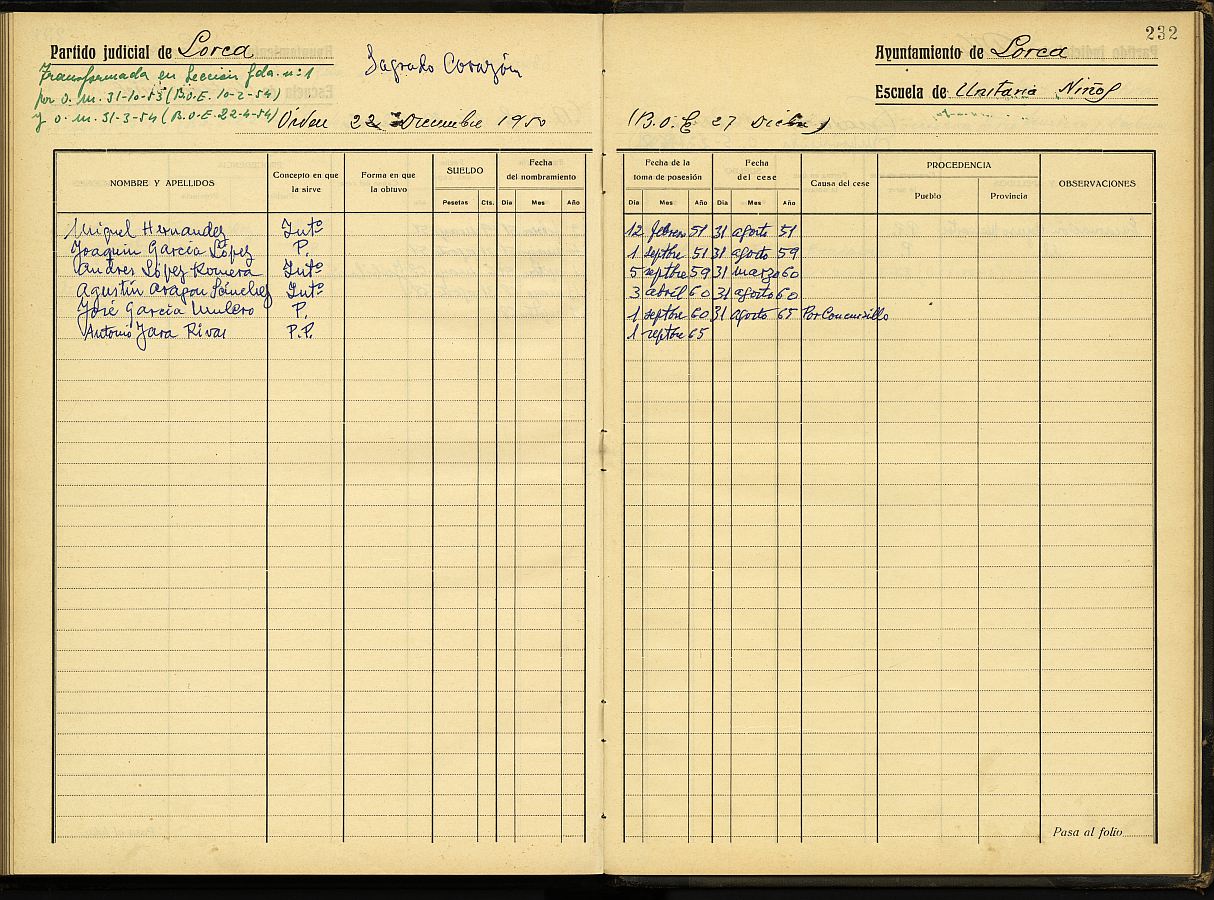 232
Partido judicial de Lorca
Sagrado Corazón
Ayuntamiento de Lorca
Transformada en Sección gda. nº 1
por O. M. 31-10-53 (B.O.E. 10-2-54)
y O. M. 31-3-54 (B.O.E. 22-4-54)
Escuela de Unitaria Niños
Orden 22 Diciembre 1950 (B.O.E 27 Dicbre)
NOMBRE Y APELLIDOS Concepto en que la sirve Forma en que la obtuvo SUELDO Pesetas Cts. Fecha del nombramiento Día Mes Año Fecha de la toma de posesión Día Mes Año Fecha del cese Día Mes Año Causa del cese PROCEDENCIA Pueblo Provincia OBSERVACIONES
Miguel Hernandez Intº 12 febrero 51 31 agosto 51
Joaquin García López P. 1 septbre 51 31 agosto 59
Andres López Romera Intº 5 septbre 59 31 marzo 60
Agustín Aragon Sánchez Intº 3 abril 60 31 agosto 60
José García Mulero P. 1 septbre 60 31 agosto 65 Por Concursillo
Antonio Jara Rivas P.P. 1 septbre 65
Pasa al folio